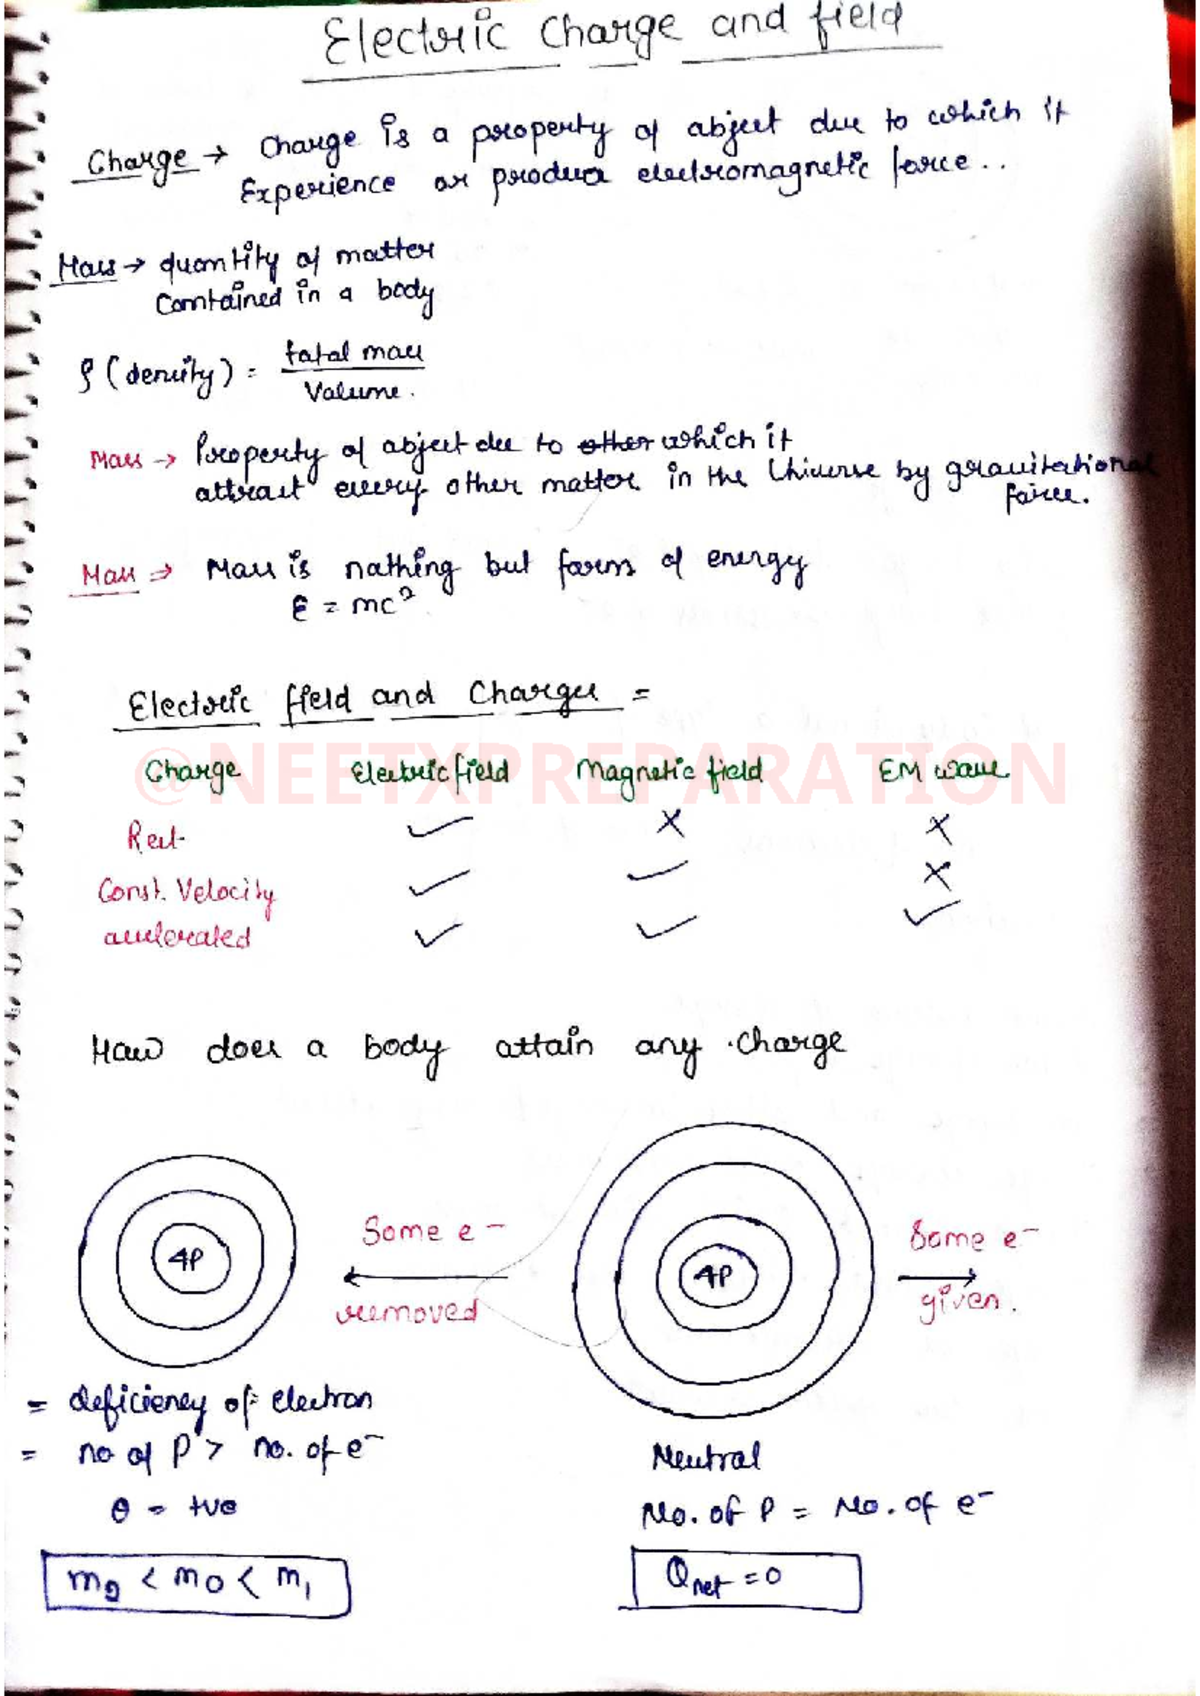 Electric Charge and field
Charge → Charge is a property of object due to which it
Experience or produce electromagnetic force..
Mass → quantity of matter
Contained in a body
ρ (density) = total mass
Volume.
Mass → Property of object due to other which it
attract every other matter in the Universe by gravitational
force.
Mass ⇒ Mass is nothing but form of energy
E = mc²
Electric field and Charges =
@NEETXPREPARATION
Charge Electric field Magnetic field EM wave
Rest ✓ × ×
Const. Velocity ✓ ✓ ×
accelerated ✓ ✓ ✓
How does a body attain any charge
4P
Some e⁻
removed
4P
Some e⁻
given.
= deficiency of electron
= no of P > no. of e⁻
Q = +ve
m₂ < m0 < m₁
Neutral
No. of P = No. of e⁻
Qnet = 0